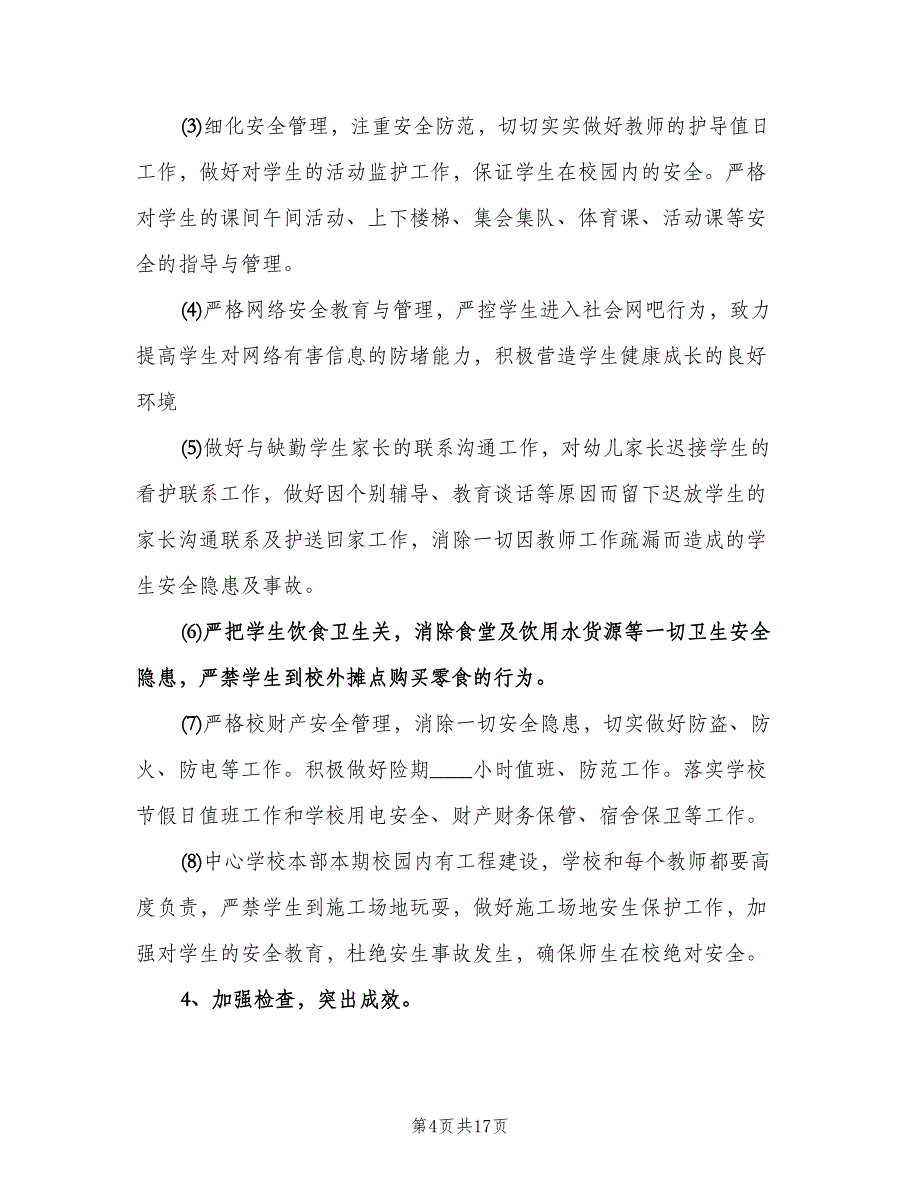 (3)细化安全管理，注重安全防范，切切实实做好教师的护导值日
工作，做好对学生的活动监护工作，保证学生在校园内的安全。严格
对学生的课间午间活动、上下楼梯、集会集队、体育课、活动课等安
全的指导与管理。
(4)严格网络安全教育与管理，严控学生进入社会网吧行为，致力
提高学生对网络有害信息的防堵能力，积极营造学生健康成长的良好
环境
(5)做好与缺勤学生家长的联系沟通工作，对幼儿家长迟接学生的
看护联系工作，做好因个别辅导、教育谈话等原因而留下迟放学生的
家长沟通联系及护送回家工作，消除一切因教师工作疏漏而造成的学
生安全隐患及事故。
(6)严把学生饮食卫生关，消除食堂及饮用水货源等一切卫生安全
隐患，严禁学生到校外摊点购买零食的行为。
(7)严格校财产安全管理，消除一切安全隐患，切实做好防盗、防
火、防电等工作。积极做好险期____小时值班、防范工作。落实学校
节假日值班工作和学校用电安全、财产财务保管、宿舍保卫等工作。
(8)中心学校本部本期校园内有工程建设，学校和每个教师都要高
度负责，严禁学生到施工场地玩耍，做好施工场地安生保护工作，加
强对学生的安全教育，杜绝安生事故发生，确保师生在校绝对安全。
4、加强检查，突出成效。
第4页共17页